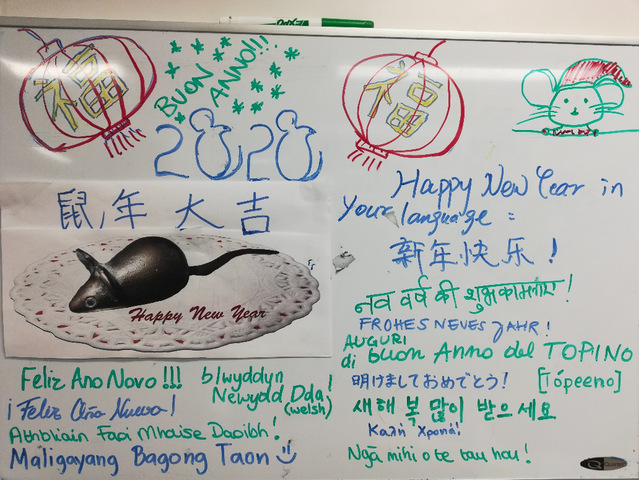 福
BUON
ANNO!!!
2020
鼠年大吉
Happy New Year
Feliz Ano Novo !!!
blwyddyn
Newydd Dda!
(welsh)
¡Feliz Año Nuevo!
Athbliain Faoi Mhaise Daoibh!
Maligayang Bagong Taon
福
Happy New Year in
your language:
新年快乐!
नव वर्ष की शुभकामनाएं!
FROHES NEUES JAHR!
AUGURI
di buon Anno del TOPINO
[Tópeeno]
明けましておめでとう!
새해 복 많이 받으세요
Καλή Χρονιά!
Ngā mihi o te tau hou!